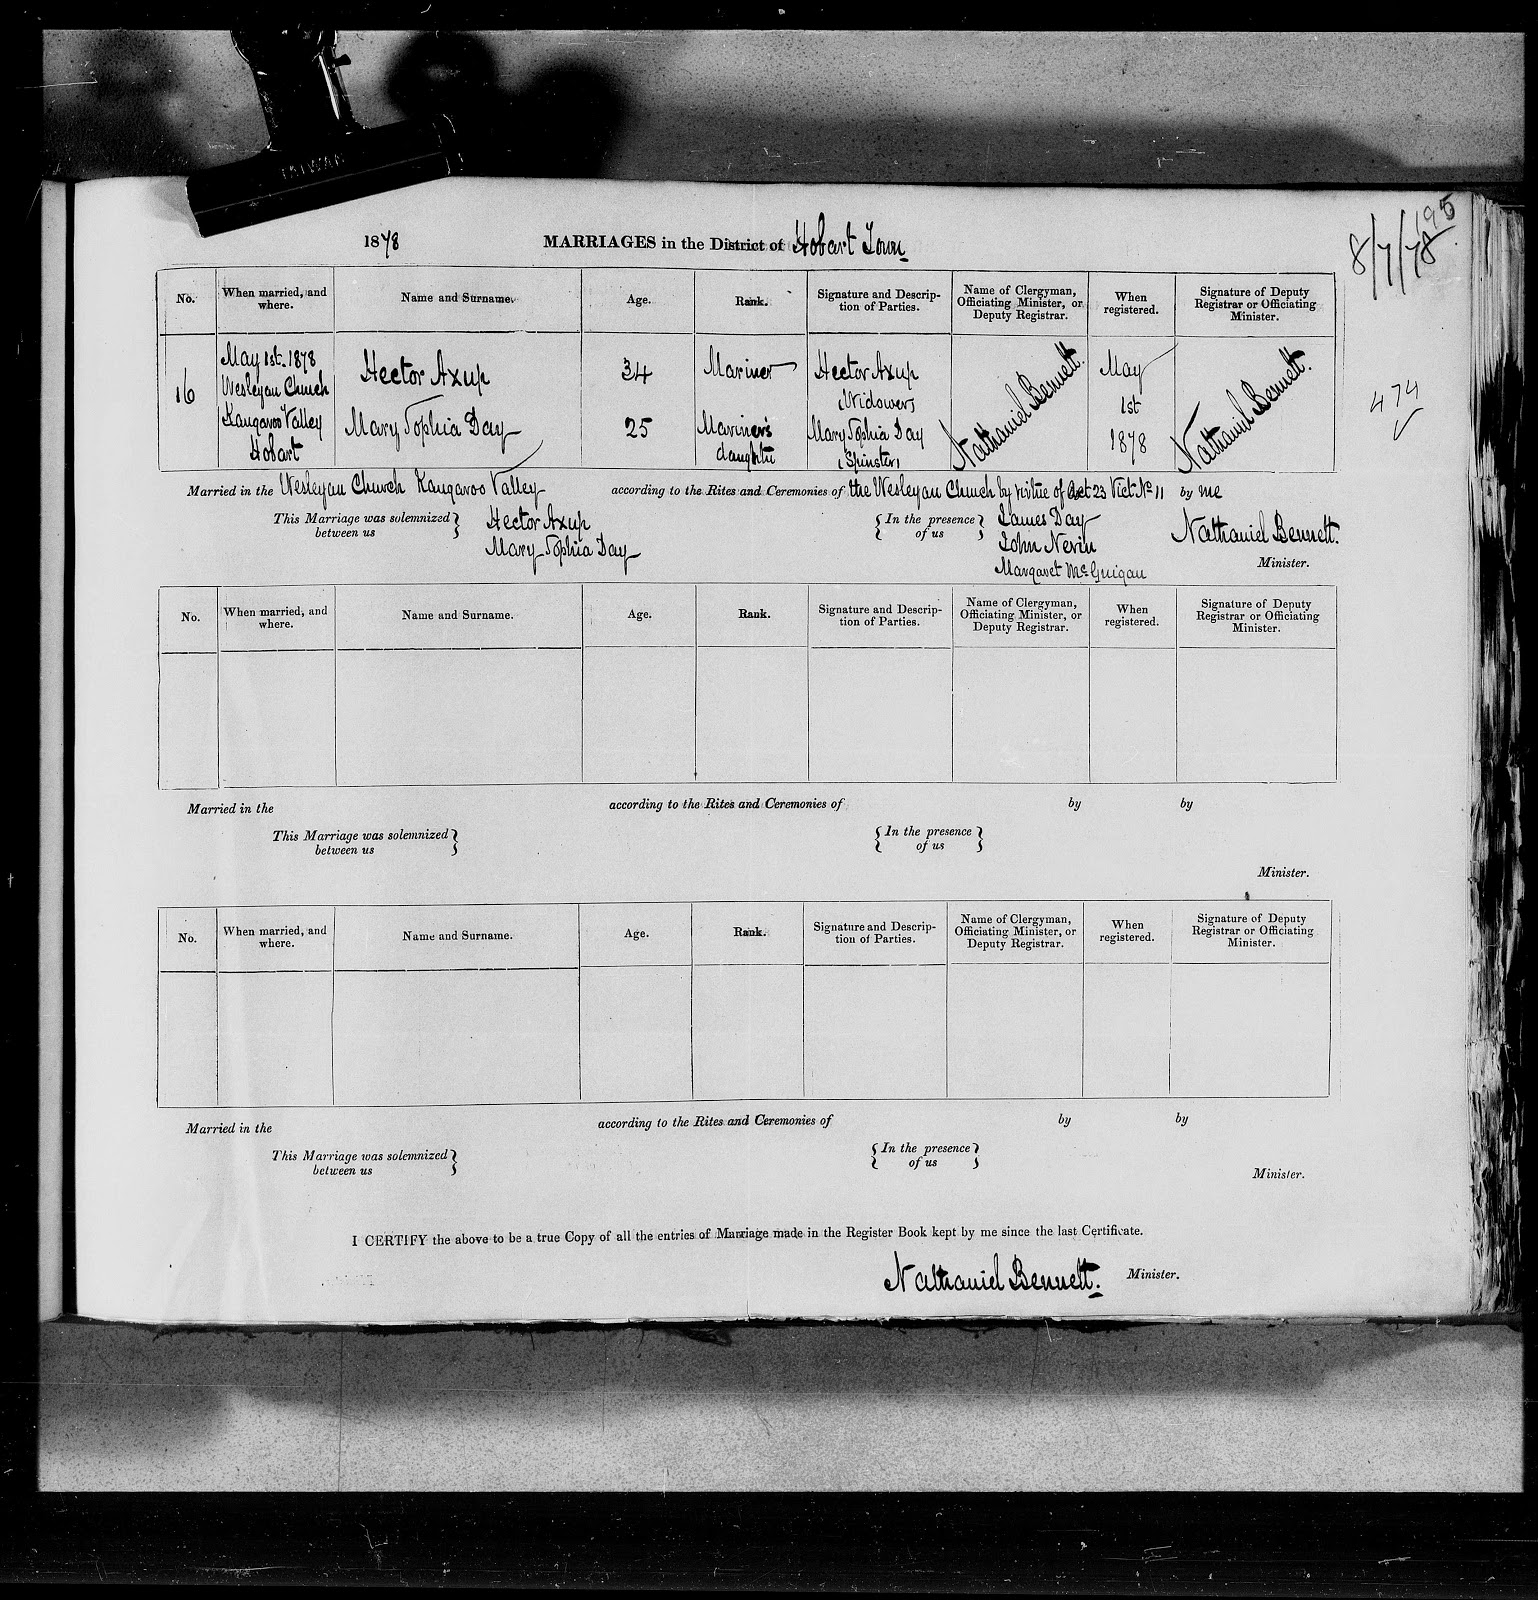 TAIWAN
195
8/7/78
1878 MARRIAGES in the District of Hobart Town
No. When married, and where. Name and Surname. Age. Rank. Signature and Description of Parties. Name of Clergyman, Officiating Minister, or Deputy Registrar. When registered. Signature of Deputy Registrar or Officiating Minister.
16 May 1st. 1878 Wesleyan Church Kangaroo Valley Hobart
Hector Axup 34 Mariner Hector Axup (Widower)
Mary Sophia Day 25 Mariner's daughter Mary Sophia Day (Spinster)
Nathaniel Bennett. May 1st 1878 Nathaniel Bennett.
474
Married in the Wesleyan Church Kangaroo Valley according to the Rites and Ceremonies of the Wesleyan Church by virtue of Act 23 Vict No 11 by me
This Marriage was solemnized between us } Hector Axup Mary Sophia Day { In the presence of us } James Day John Nevin Margaret McGuigan Nathaniel Bennett.
Minister.
No. When married, and where. Name and Surname. Age. Rank. Signature and Description of Parties. Name of Clergyman, Officiating Minister, or Deputy Registrar. When registered. Signature of Deputy Registrar or Officiating Minister.
Married in the according to the Rites and Ceremonies of by by
This Marriage was solemnized between us } { In the presence of us }
Minister.
No. When married, and where. Name and Surname. Age. Rank. Signature and Description of Parties. Name of Clergyman, Officiating Minister, or Deputy Registrar. When registered. Signature of Deputy Registrar or Officiating Minister.
Married in the according to the Rites and Ceremonies of by by
This Marriage was solemnized between us } { In the presence of us }
Minister.
I CERTIFY the above to be a true Copy of all the entries of Marriage made in the Register Book kept by me since the last Certificate.
Nathaniel Bennett. Minister.